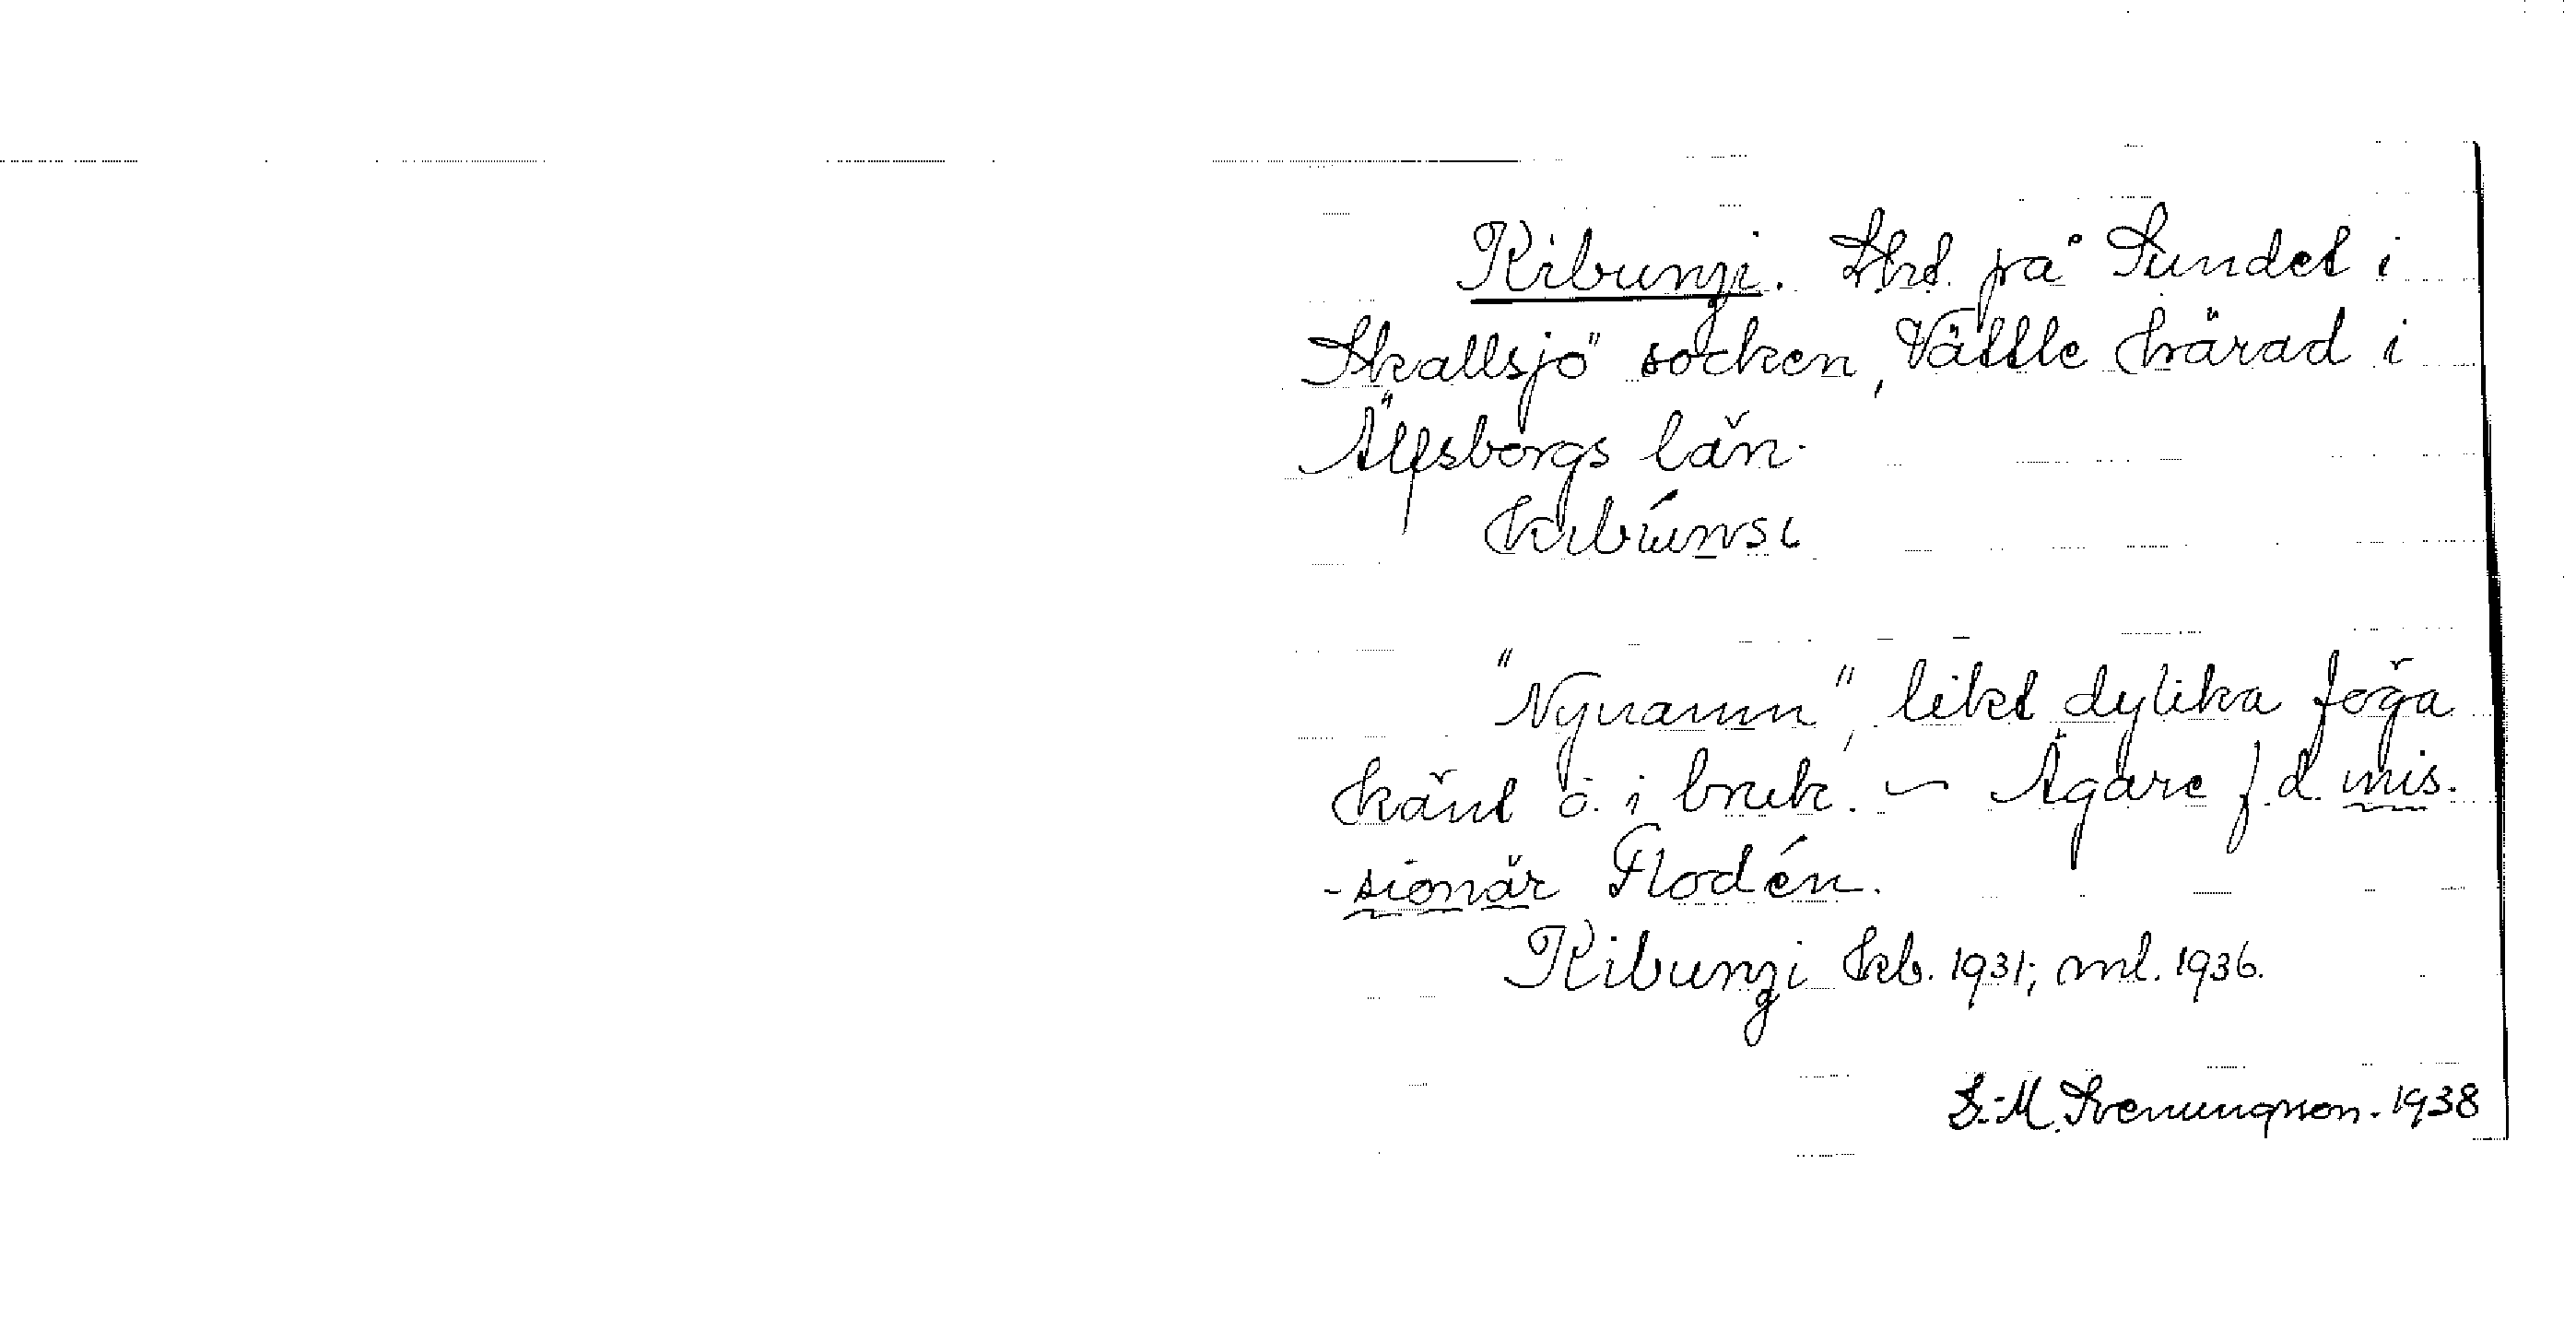 Kibunzi. Lht. på Sundet i
Skallsjö socken, Vättle härad i
Älfsborgs län.
kibúnsi
"Nynamn", likt dylika föga
känt o. i bruk. – Ägare f. d. mis-
-sionär Flodén.
Kibunzi kb. 1931; ml. 1936.
S.-M. Svenungson. 1938